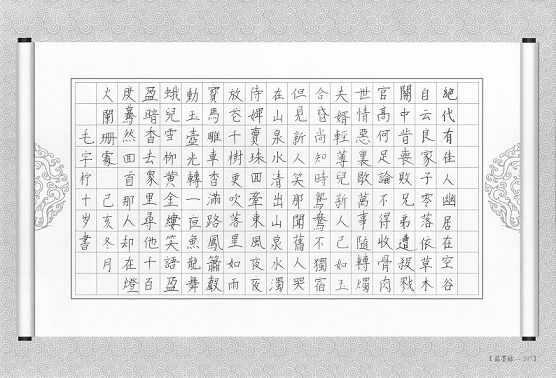 絕代有佳人幽居在空谷
自云良家子零落依草木
關中昔喪敗兄弟遭殺戮
官高何足論不得收骨肉
世情惡衰歇萬事隨轉燭
夫婿輕薄兒新人已如玉
合昏尚知時鴛鴦不獨宿
但見新人笑那聞舊人哭
在山泉水清出山泉水濁
侍婢賣珠回牽東風夜夜
放花千樹更吹落星如雨
寶馬雕車香滿路鳳簫聲
動玉壺光轉一夜魚龍舞
蛾兒雪柳黃金縷笑語盈
盈暗香去眾里尋他千百
度驀然回首那人却在燈
火闌珊處 己亥冬月
毛字柠十岁書